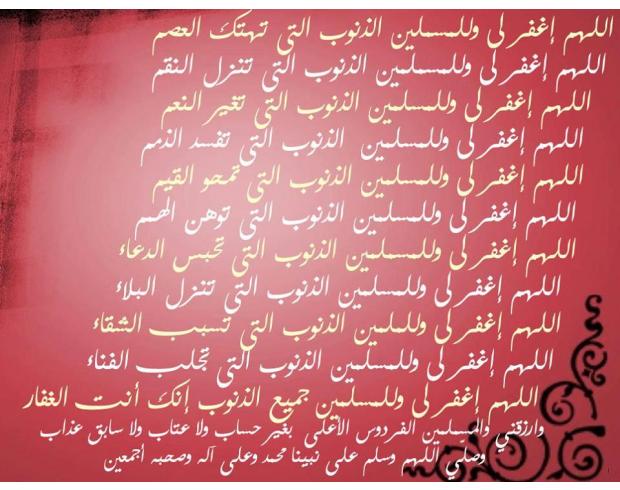 اللهم إغفر لي وللمسلمين الذنوب التي تهتك العصم
اللهم إغفر لي وللمسلمين الذنوب التي تنزل النقم
اللهم إغفر لي وللمسلمين الذنوب التي تغير النعم
اللهم إغفر لي وللمسلمين الذنوب التي تفسد الذمم
اللهم إغفر لي وللمسلمين الذنوب التي تمحو القيم
اللهم إغفر لي وللمسلمين الذنوب التي توهن الهمم
اللهم إغفر لي وللمسلمين الذنوب التي تحبس الدعاء
اللهم إغفر لي وللمسلمين الذنوب التي تنزل البلاء
اللهم إغفر لي وللمسلمين الذنوب التي تسبب الشقاء
اللهم إغفر لي وللمسلمين الذنوب التي تجلب الفناء
اللهم إغفر لي وللمسلمين جميع الذنوب إنك أنت الغفار
وارزقني والمسلمين الفردوس الأعلى بغير حساب ولا عتاب ولا سابق عذاب
وصلي اللهم وسلم على نبينا محمد وعلى آله وصحبه أجمعين